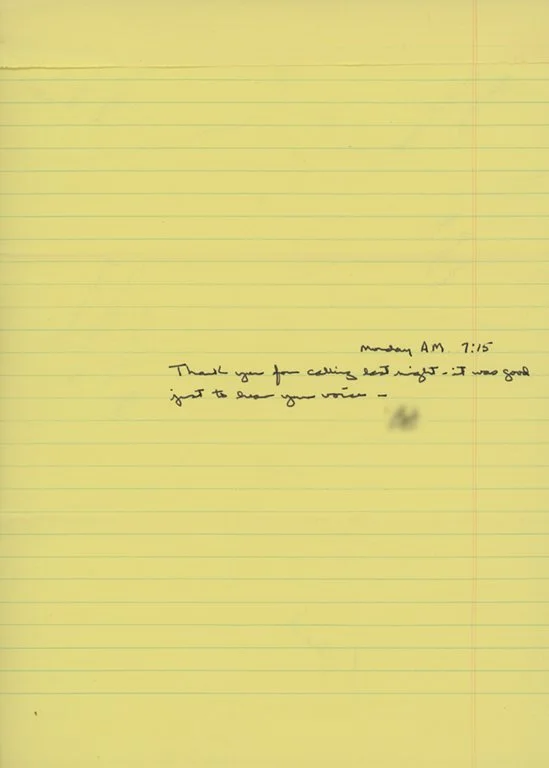 Monday AM. 7:15
Thank you for calling last night - it was good
just to hear your voice -